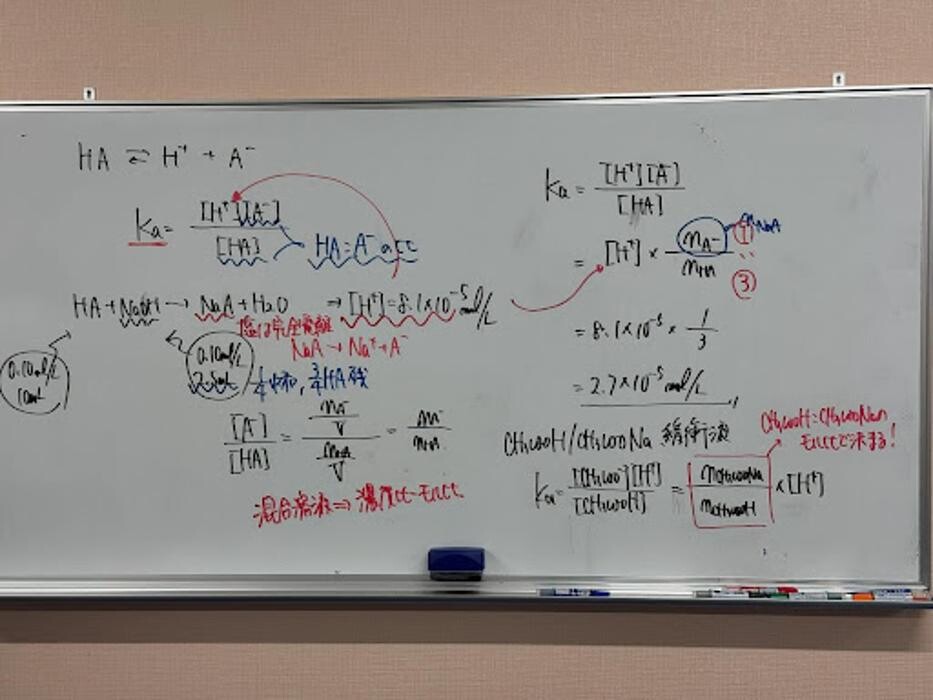 HA ⇄ H⁺ + A⁻
Ka = [H⁺][A⁻] / [HA]
HA = A⁻の比
HA + NaOH → NaA + H₂O → [H⁺] = 8.1×10⁻⁵ mol/L
塩は完全電離
NaA → Na⁺ + A⁻
0.10mol/L
10mL
0.10mol/L
2.5mL
1/4中和, 3/4HA残
[A⁻] / [HA] = (nA⁻ / V) / (nHA / V) = nA⁻ / nHA
混合溶液 ⇒ 濃度比=モル比
Ka = [H⁺][A⁻] / [HA]
= [H⁺] × nA⁻ / nHA
nNaA
① : ③
= 8.1×10⁻⁵ × 1/3
= 2.7×10⁻⁵ mol/L
CH₃COOH/CH₃COONa 緩衝液
CH₃COOH:CH₃COONaの
モル比で決まる!
Ka = [CH₃COO⁻][H⁺] / [CH₃COOH] = nCH₃COONa / nCH₃COOH × [H⁺]